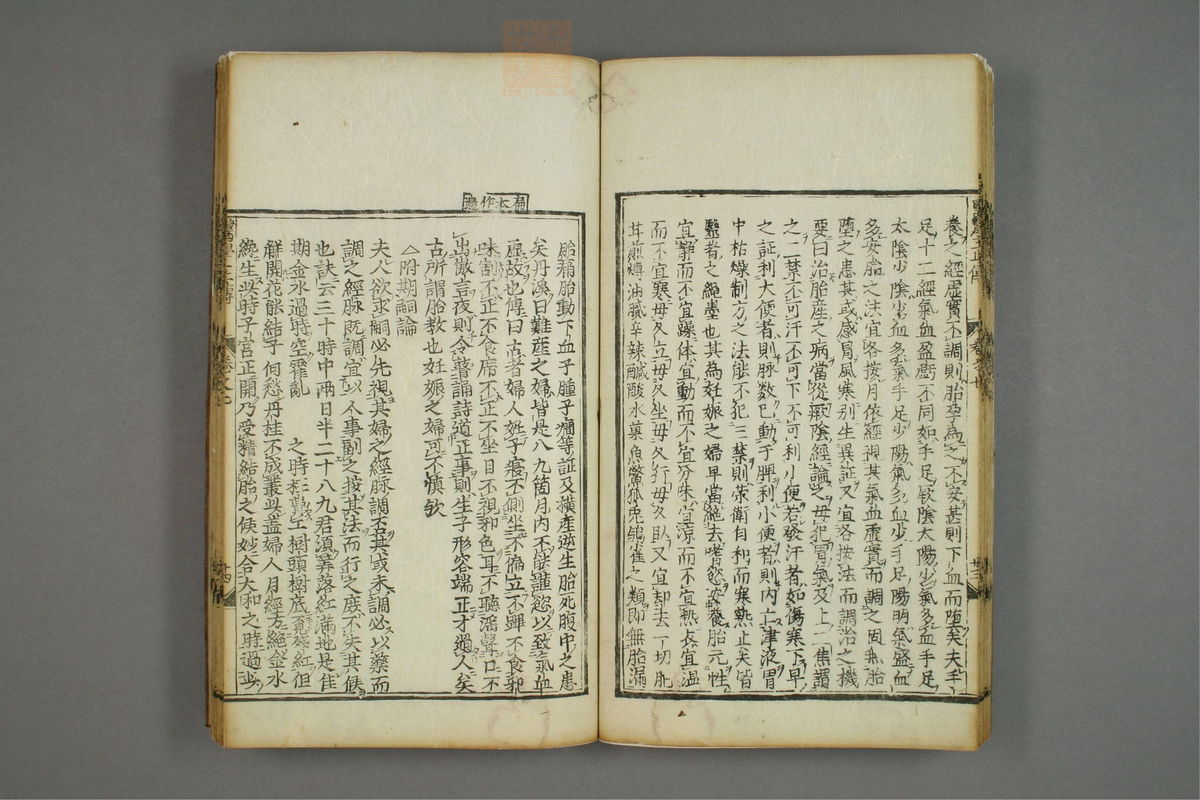 養之經虛實不調則胎孕爲之不安甚則下血而墮矣夫手
足十二經氣血盈虧不同如手足厥陰太陽少氣多血手足
太陰少陰少血多氣手足少陽氣多血少手足陽明氣盛血
多安胎之法宜各按月依經視其氣血虛實而調之固無胎
墮之患其或感冐風寒別生異証又宜各按法而調治之機
要曰治胎産之病當從厥陰經論之毋犯胃氣及上二焦謂
之三禁不可汗不可下不可利小便若發汗者如傷寒下早
之証利大便者則脉数已動于脾利小便者則内亡津液胃
中枯燥制方之法能不犯三禁則榮衛自和而寒熱止矣皆
毉者之繩墨也其為妊娠之婦早當絶去嗜慾安養胎元性
宜靜而不宜躁体宜動而不宜勞味宜凉而不宜熱食宜温
而不宜寒毋久立毋久坐毋久行毋久臥又宜却去一切肥
甘煎煿油膩辛辣鹹酸水菓魚鱉狐兎鴿雀之類即無胎漏
扁本作
胎痛胎動下血子腫子癇等証及横産逆生胎死腹中之患
矣丹溪曰難産之婦皆是八九箇月内不能謹慾以致氣血
虛故也傳曰古者婦人姙子寢不側坐不偏立不蹕不食邪
味割不正不食席不正不坐目不視邪色耳不聽淫聲口不
出傲言夜則令瞽誦詩道正事則生子形容端正才過人矣
古所謂胎教也妊娠之婦可不慎欤
△附期嗣論
夫人欲求嗣必先視其婦之經脉調否其或未調必以藥而
調之經脉既調宜以人事副之按其法而行之庶不失其候
也訣云三十時中兩日半二十八九君須筭落紅滿地是佳
期金水過時空霍亂之時枉費工樹頭樹底覔殘紅但
解開花能結子何愁丹桂不成叢此盖婦人月經方絶金水
纔生此時子宮正開乃受精結胎之候妙合太和之時過此